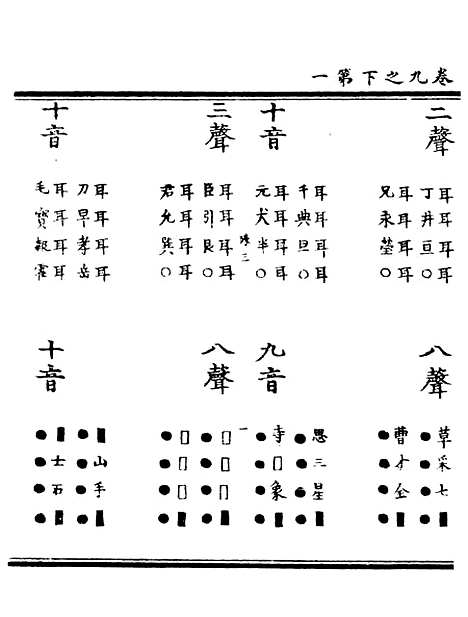 卷九之下第一
二聲
耳耳耳耳
丁井亘○
耳耳耳耳
兄永瑩○
十音
耳耳耳耳
千典旦○
耳耳耳耳
元犬半○
三
三聲
耳耳耳耳
臣引艮○
耳耳耳耳
君允巽○
十音
耳耳耳耳
刀早孝岳
耳耳耳耳
毛寶報霍
八聲
草采七■
●●●●
曹才全■
●●●●
九音
思三星■
●●●●
寺□象■
●●●●
一
八聲
□□□■
●●●●
□□□■
●●●●
十音
■山手■
●●●●
■士石■
●●●●